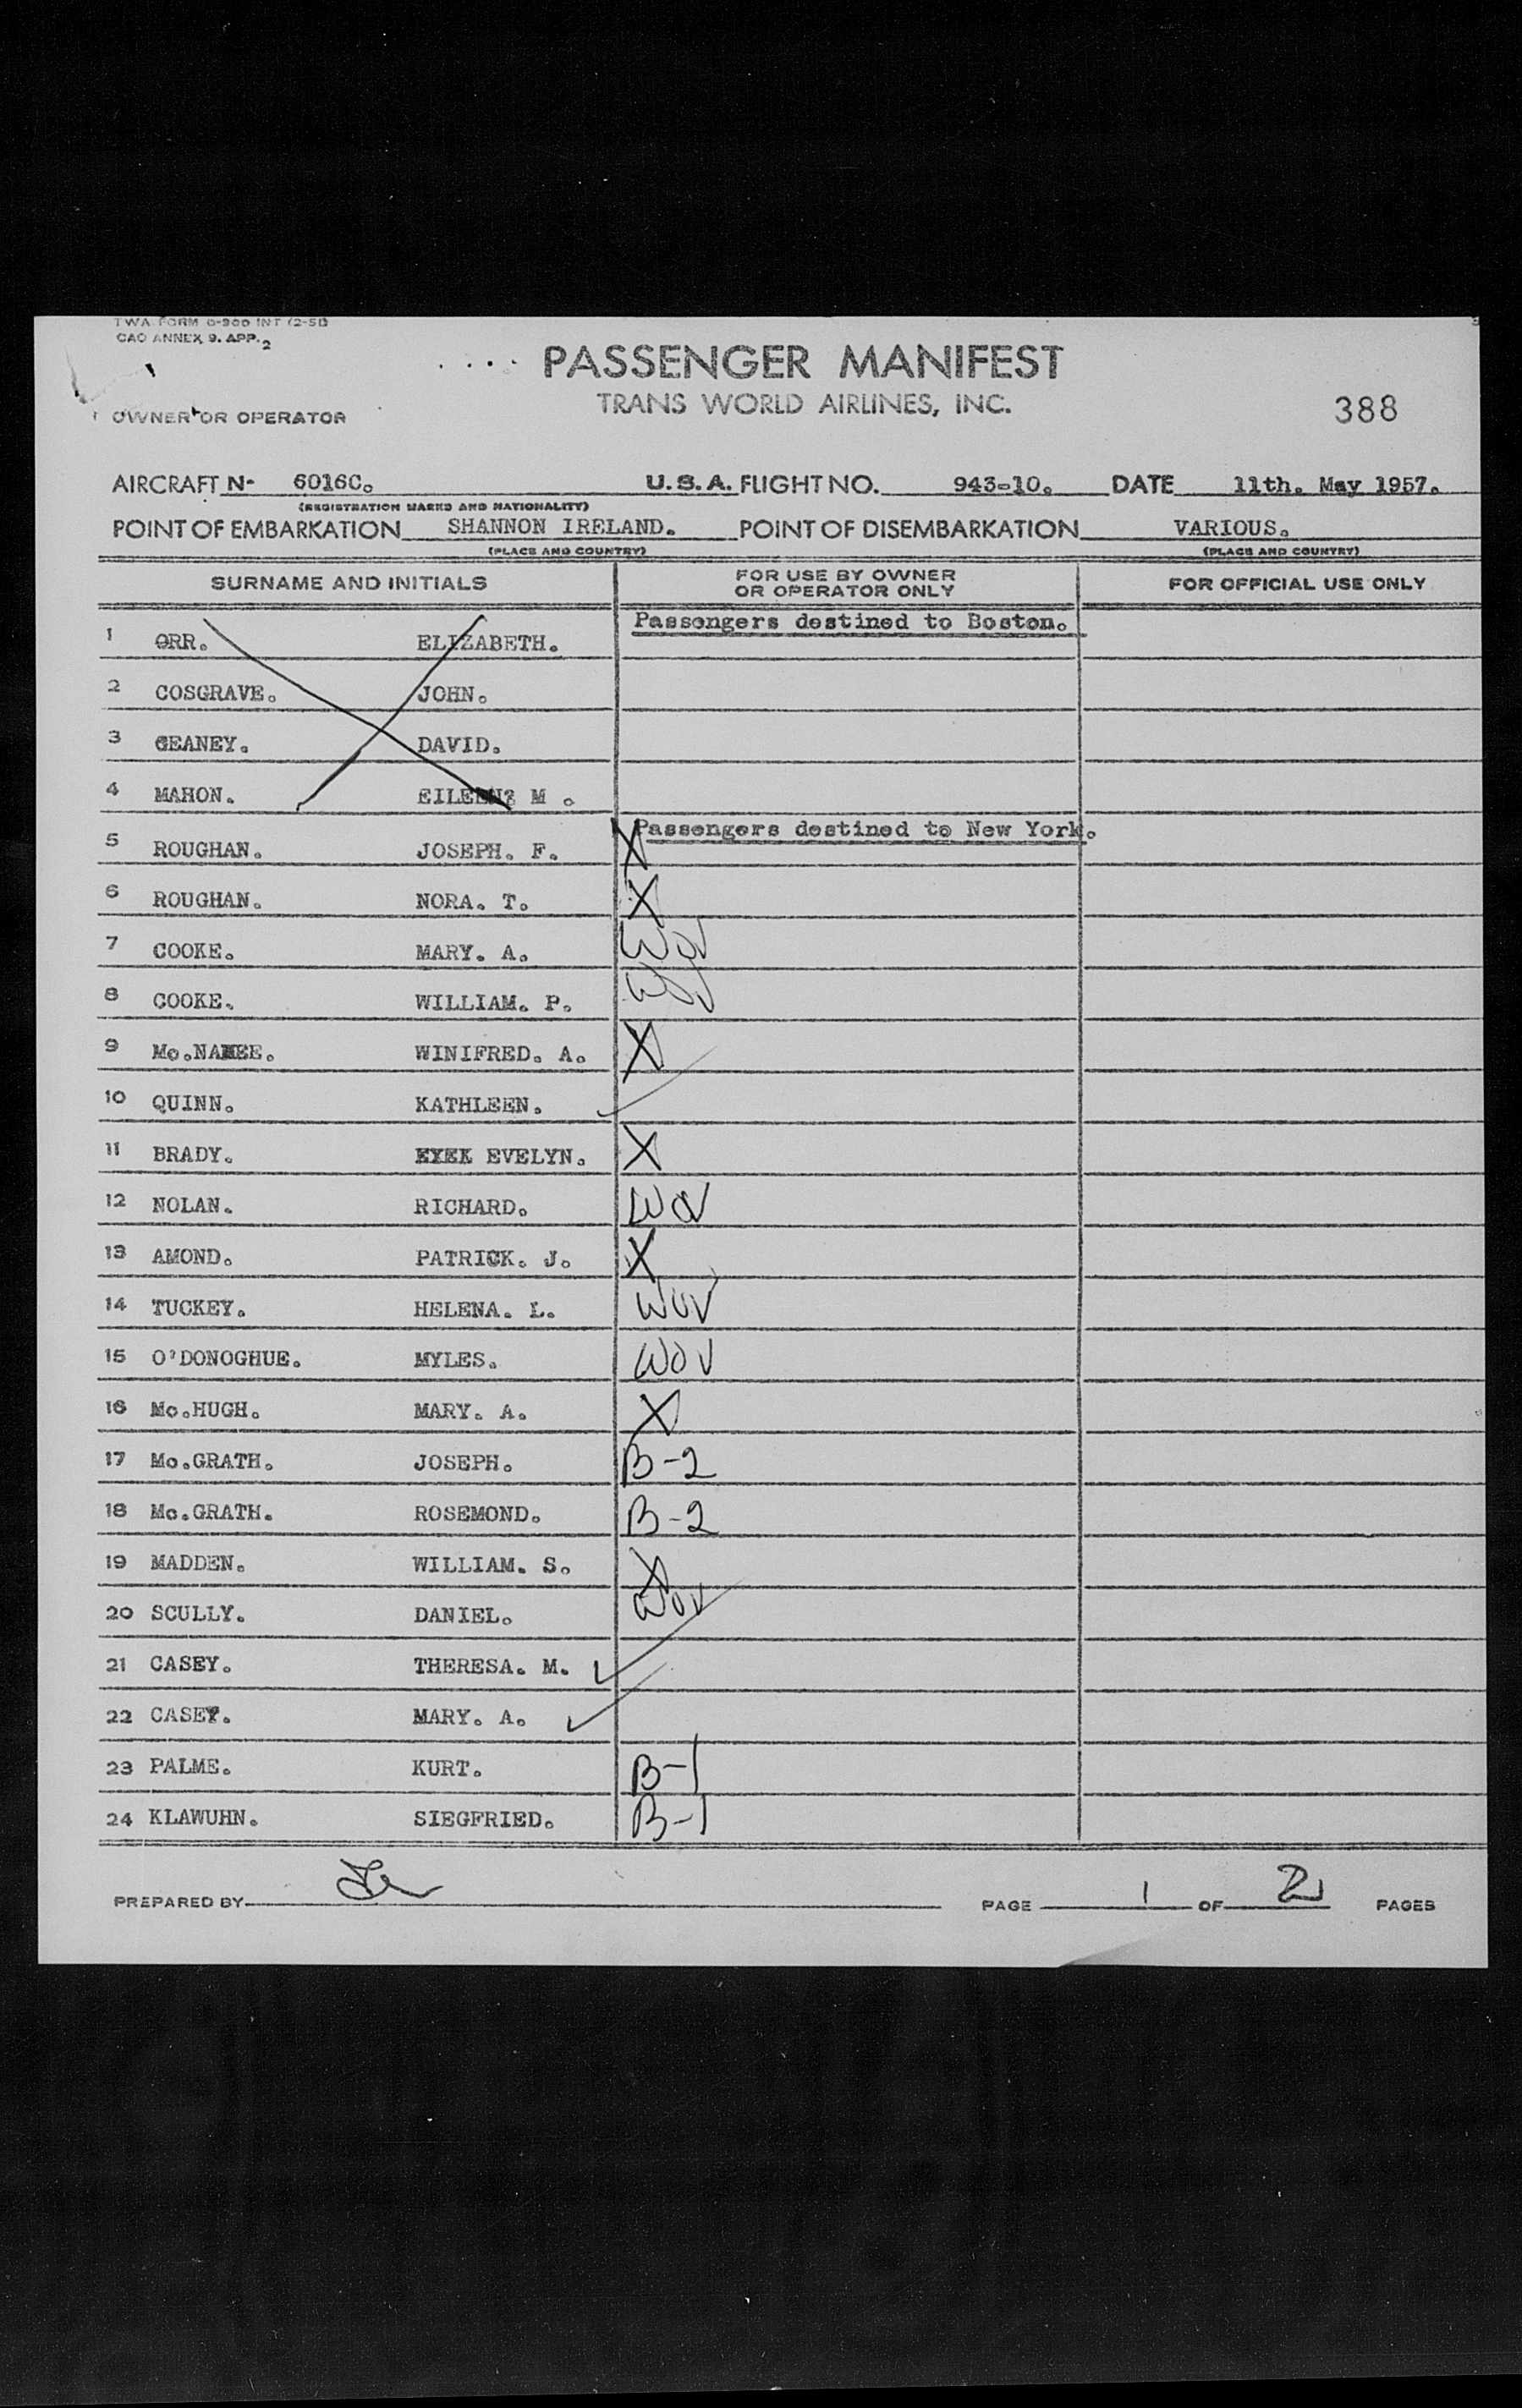 TWA FORM 0-300 INT (2-51)
CAO ANNEX 9. APP. 2
PASSENGER MANIFEST
TRANS WORLD AIRLINES, INC.
388
OWNER OR OPERATOR
AIRCRAFT N- 6016C. U.S.A. FLIGHT NO. 943-10. DATE 11th. May 1957.
(REGISTRATION MARKS AND NATIONALITY)
POINT OF EMBARKATION SHANNON IRELAND. POINT OF DISEMBARKATION VARIOUS.
(PLACE AND COUNTRY) (PLACE AND COUNTRY)
SURNAME AND INITIALS FOR USE BY OWNER OR OPERATOR ONLY FOR OFFICIAL USE ONLY
Passengers destined to Boston.
1 ORR. ELIZABETH.
2 COSGRAVE. JOHN.
3 GEANEY. DAVID.
4 MAHON. EILEEN M .
Passengers destined to New York.
5 ROUGHAN. JOSEPH. F. X
6 ROUGHAN. NORA. T. X
7 COOKE. MARY. A. WOV
8 COOKE. WILLIAM. P. WOV
9 Mc.NAMEE. WINIFRED. A. X
10 QUINN. KATHLEEN. ✓
11 BRADY. EVELYN. X
12 NOLAN. RICHARD. WOV
13 AMOND. PATRICK. J. X
14 TUCKEY. HELENA. L. WOV
15 O'DONOGHUE. MYLES. WOV
16 Mc.HUGH. MARY. A. X
17 Mc.GRATH. JOSEPH. B-2
18 Mc.GRATH. ROSEMOND. B-2
19 MADDEN. WILLIAM. S. X
20 SCULLY. DANIEL. WOV
21 CASEY. THERESA. M. ✓
22 CASEY. MARY. A. ✓
23 PALME. KURT. B-1
24 KLAWUHN. SIEGFRIED. B-1
PREPARED BY PAGE 1 OF 2 PAGES